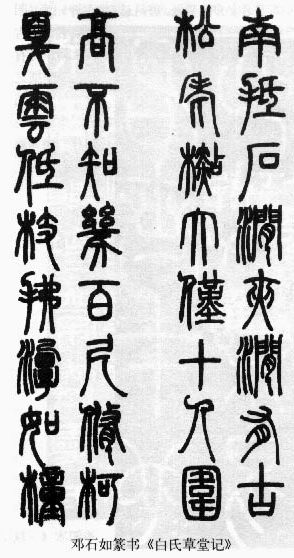 南抵石澗夾澗有古
松老檆大僅十人圍
高不知幾百尺修柯
戛雲低枝拂潭如橦
邓石如篆书《白氏草堂记》